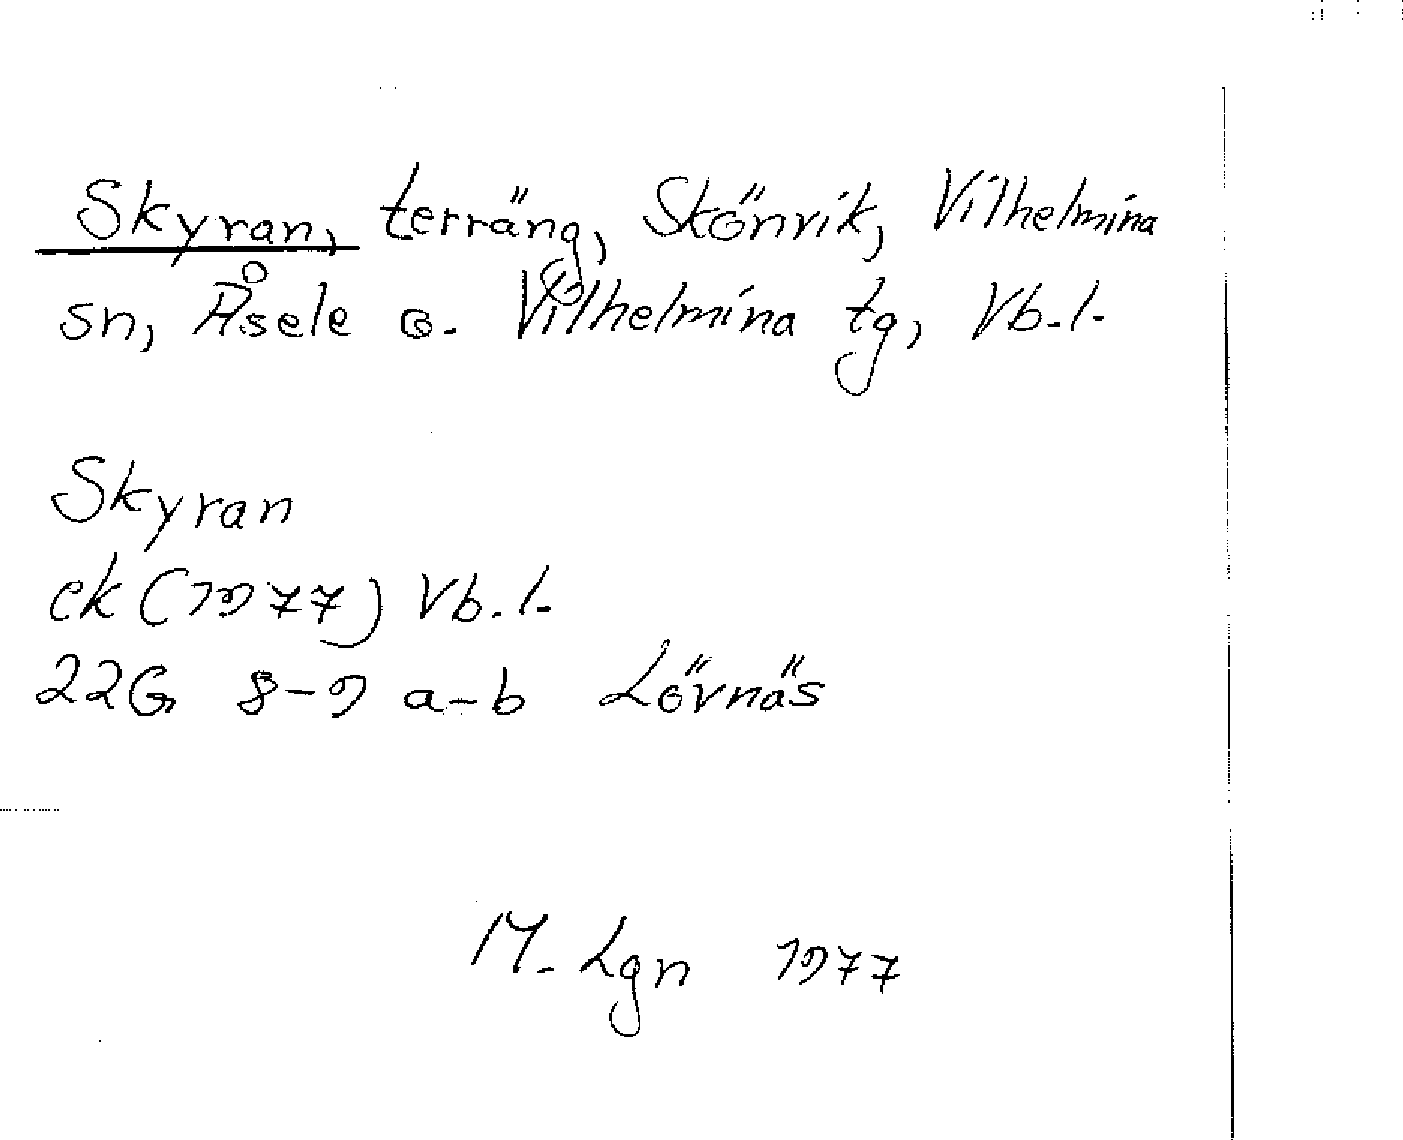 Skyran, terräng, Skönvik, Vilhelmina
sn, Åsele o. Vilhelmina tg, Vb. l.
Skyran
ek (1977) Vb. l.
22G 8-9 a-b Lövnäs
M. Lgn 1977